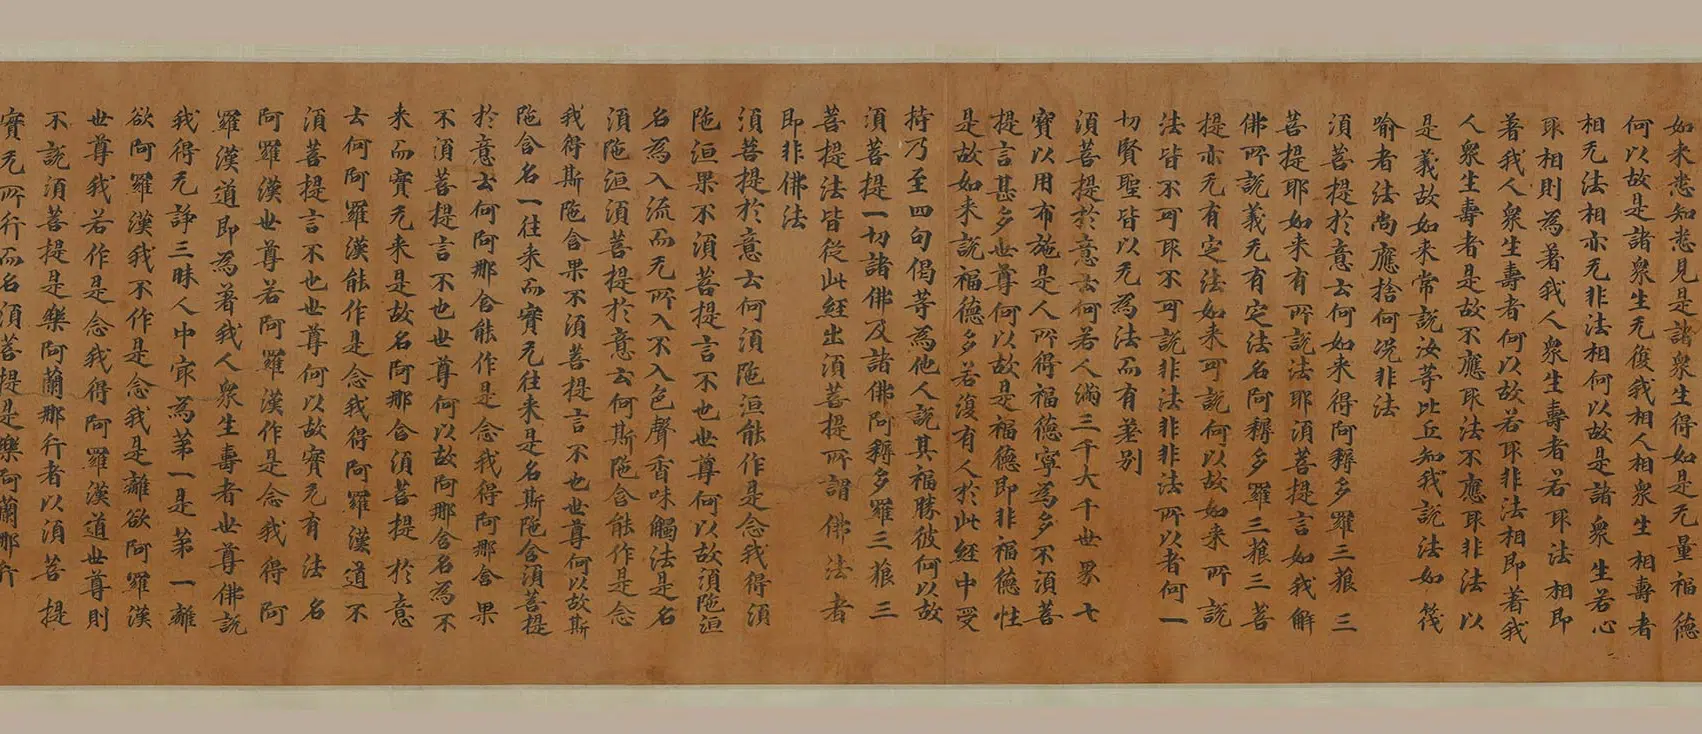 如来悉知悉見是諸衆生得如是无量福德
何以故是諸衆生无復我相人相衆生相壽者
相无法相亦无非法相何以故是諸衆生若心
取相則為著我人衆生壽者若取法相即
著我人衆生壽者何以故若取非法相即著我
人衆生壽者是故不應取法不應取非法以
是義故如来常說汝等比丘知我說法如筏
喻者法尚應捨何況非法
須菩提於意云何如来得阿耨多羅三藐三
菩提耶如来有所說法耶須菩提言如我解
佛所說義无有定法名阿耨多羅三藐三菩
提亦无有定法如来可說何以故如来所說
法皆不可取不可說非法非非法所以者何一
切賢聖皆以无為法而有差別
須菩提於意云何若人滿三千大千世界七
寶以用布施是人所得福德寧為多不須菩
提言甚多世尊何以故是福德即非福德性
是故如来說福德多若復有人於此経中受
持乃至四句偈等為他人說其福勝彼何以故
須菩提一切諸佛及諸佛阿耨多羅三藐三
菩提法皆從此経出須菩提所謂佛法者
即非佛法
須菩提於意云何須陁洹能作是念我得須
陁洹果不須菩提言不也世尊何以故須陁洹
名為入流而无所入不入色聲香味觸法是名
須陁洹須菩提於意云何斯陁含能作是念
我得斯陁含果不須菩提言不也世尊何以故斯
陁含名一往来而實无往来是名斯陁含須菩提
於意云何阿那含能作是念我得阿那含果
不須菩提言不也世尊何以故阿那含名為不
来而實无来是故名阿那含須菩提於意
云何阿羅漢能作是念我得阿羅漢道不
須菩提言不也世尊何以故實无有法名
阿羅漢世尊若阿羅漢作是念我得阿
羅漢道即為著我人衆生壽者世尊佛說
我得无諍三昧人中㝡為第一是第一離
欲阿羅漢我不作是念我是離欲阿羅漢
世尊我若作是念我得阿羅漢道世尊則
不說須菩提是樂阿蘭那行者以須菩提
實无所行而名須菩提是樂阿蘭那行